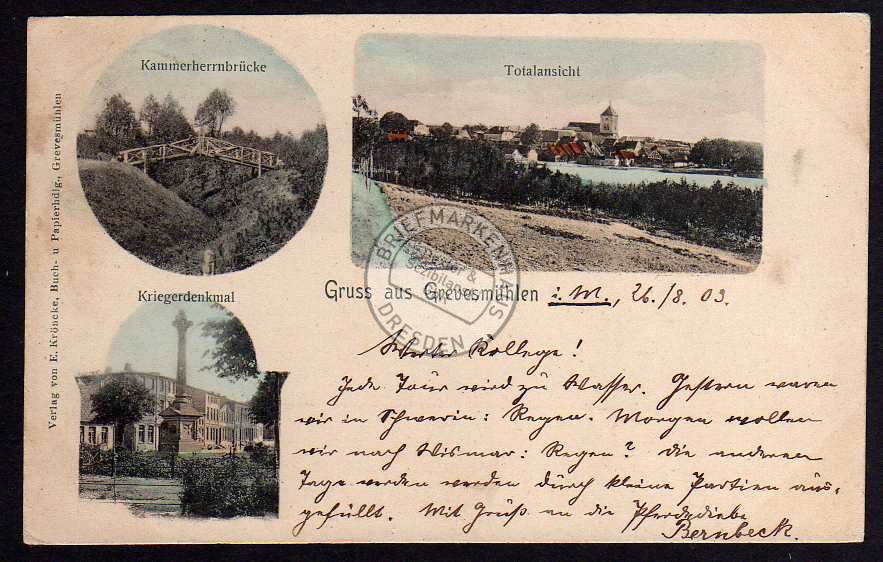 Kammerherrnbrücke
Totalansicht
Verlag von E. Kröncke, Buch- u Papierhdlg., Grevesmühlen
Kriegerdenkmal
BRIEFMARKENHAUS
DRESDEN
Gruss aus Grevesmühlen i. M., 26./8. 03.
Werter Kollege!
Jede Tour wird zu Wasser. Gestern waren
wir in Schwerin: Regen. Morgen wollen
wir nach Wismar: Regen? Die anderen
Tage werden werden durch kleine Partien aus-
gefüllt. Mit Gruß an die Pferdediebe
Bernbeck.